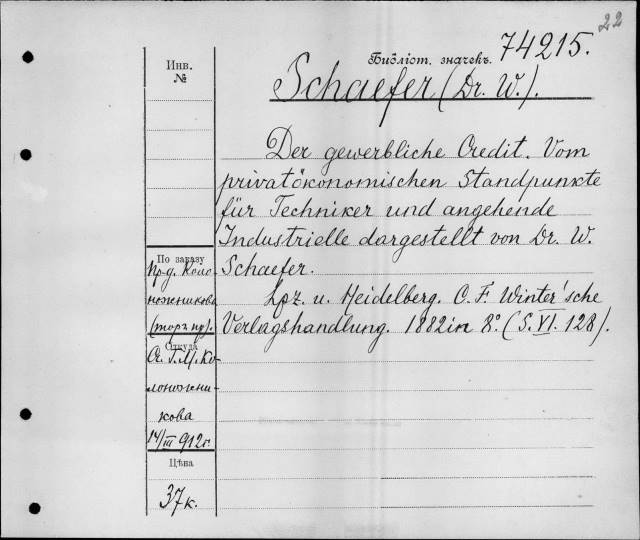 22
Библіот. значекъ. 74215.
Инв.
№
Schaefer (Dr. W.).
Der gewerbliche Credit. Vom
privatökonomischen Standpunkte
für Techniker und angehende
Industrielle dargestellt von Dr. W.
Schaefer.
Lpz. u. Heidelberg. C. F. Winter'sche
Verlagshandlung. 1882 in 8°. (S. VI. 128).
По заказу
Пр-д. Коло-
ножникова
(торг. пр).
Откуда
Г. М. Ко-
лоножни-
кова
14/III 912 г.
Цѣна
37 к.